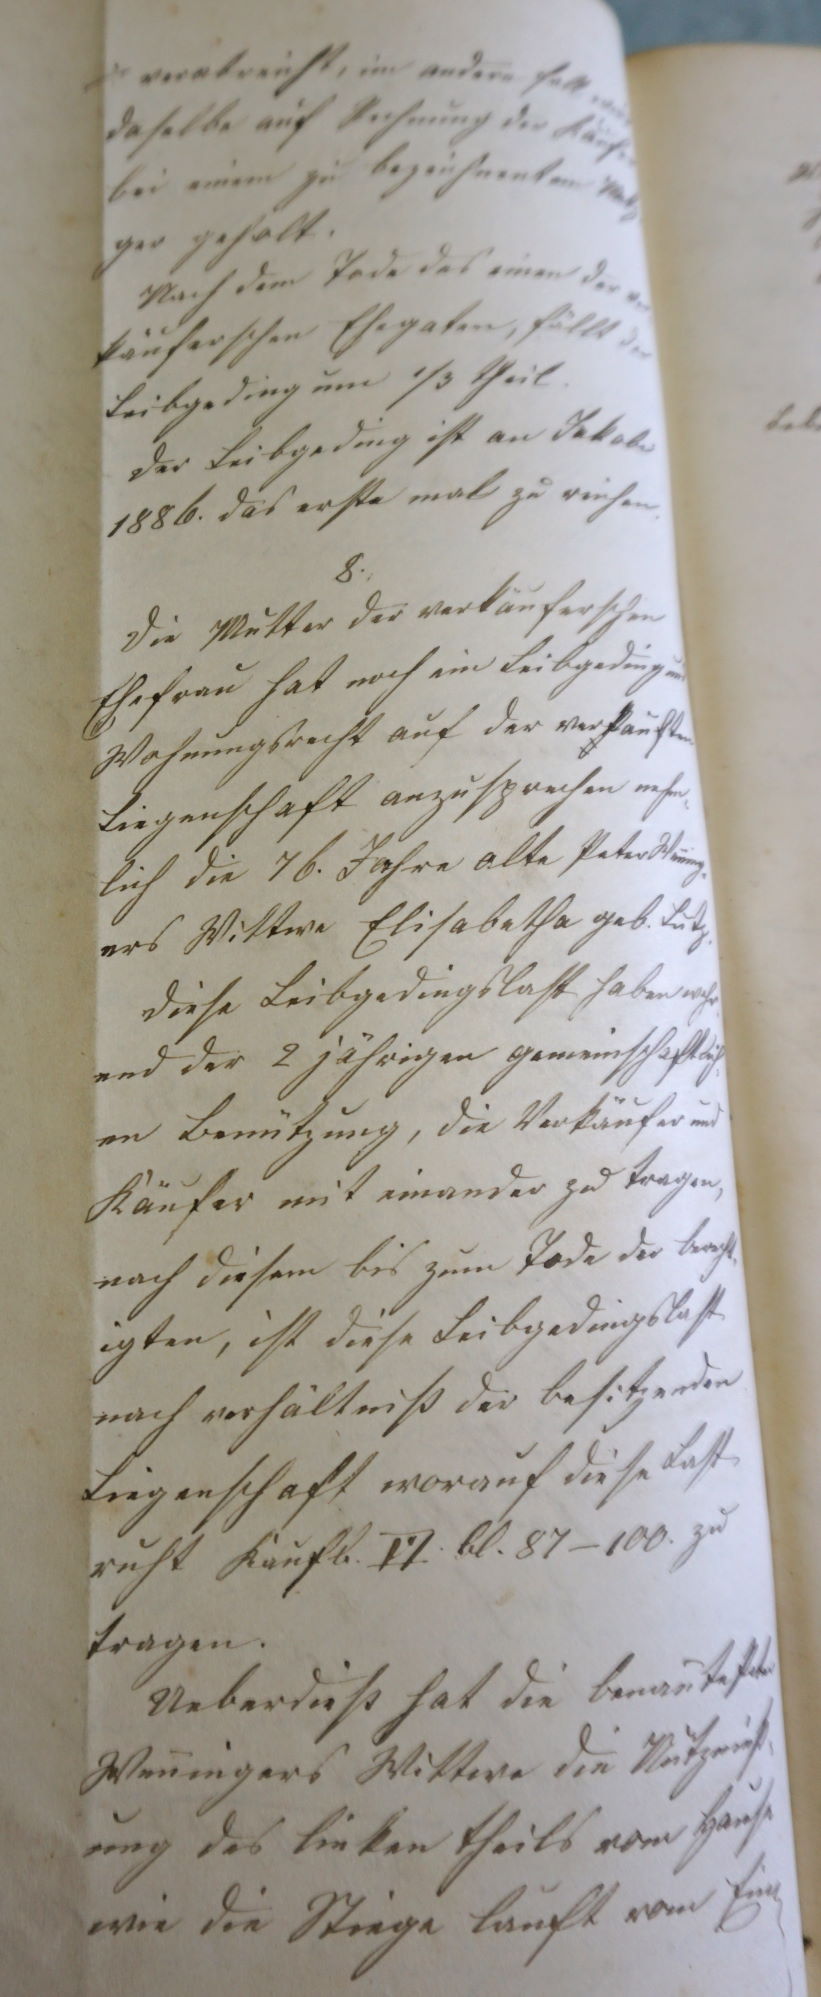 verabreicht, im andern Fall wird
daselbe auf Rechnung der Käufer
bei einem zu bezeichnentem Metz
ger geholt.
Nach dem Tode des einen der ver
käuferschen Ehegaten, fällt der
Leibgeding um 1/3 Theil.
Der Leibgeding ist an Jakobi
1886. das erste mal zu reichen.
8.
Die Mutter der verkäuferschen
Ehefrau hat noch ein Leibgeding und
Wohnungsrecht auf der verkauften
Liegenschaft anzusprechen nehm-
lich die 76. Jahre alte Peter Wening-
ers Wittwe Elisabetha geb. Lutz.
Diese Leibgedingslast haben wehr-
end der 2 jährigen gemeinschaftlich-
en Benützung, die Verkäufer und
Käufer mit einander zu tragen,
nach diesem bis zum Tode der berecht-
igten, ist diese Leibgedingslast
nach verhältniß der besitzenden
Liegenschaft worauf diese Last
ruht Kaufb. IV. bl. 87-100. zu
tragen.
Ueberdieß hat die benante Peter
Weningers Wittwe die Nutznieß-
ung des linken theils vom Hause
wie die Stiege lauft vom